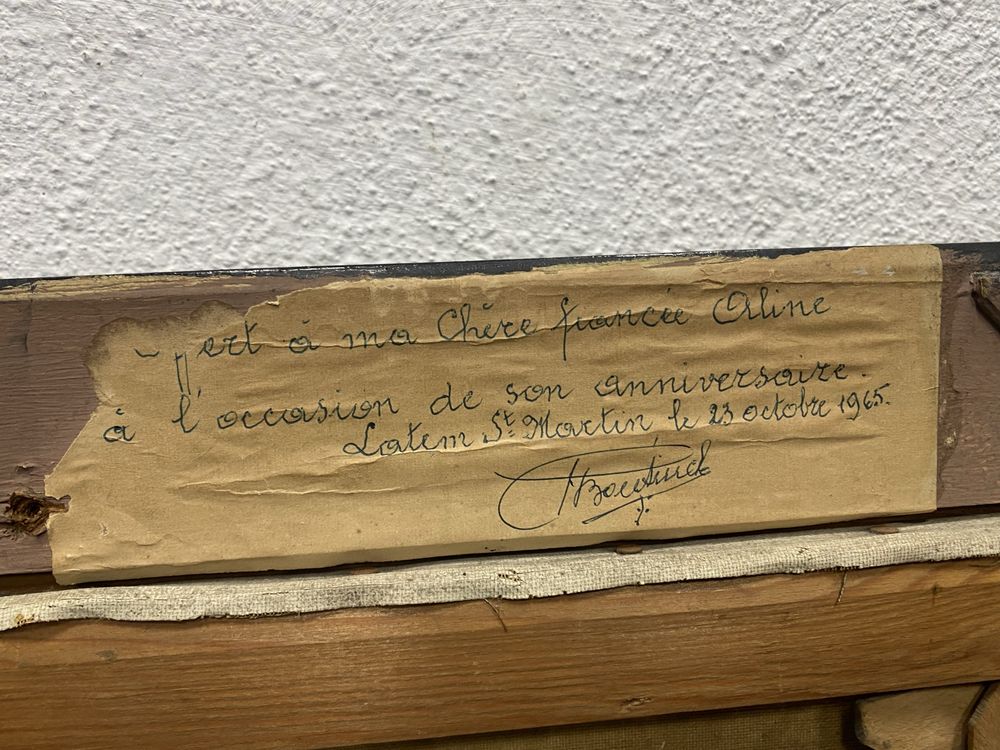 ert à ma Chère fiancée Aline
à l'occasion de son anniversaire.
Latem St. Martin le 23 octobre 1965.